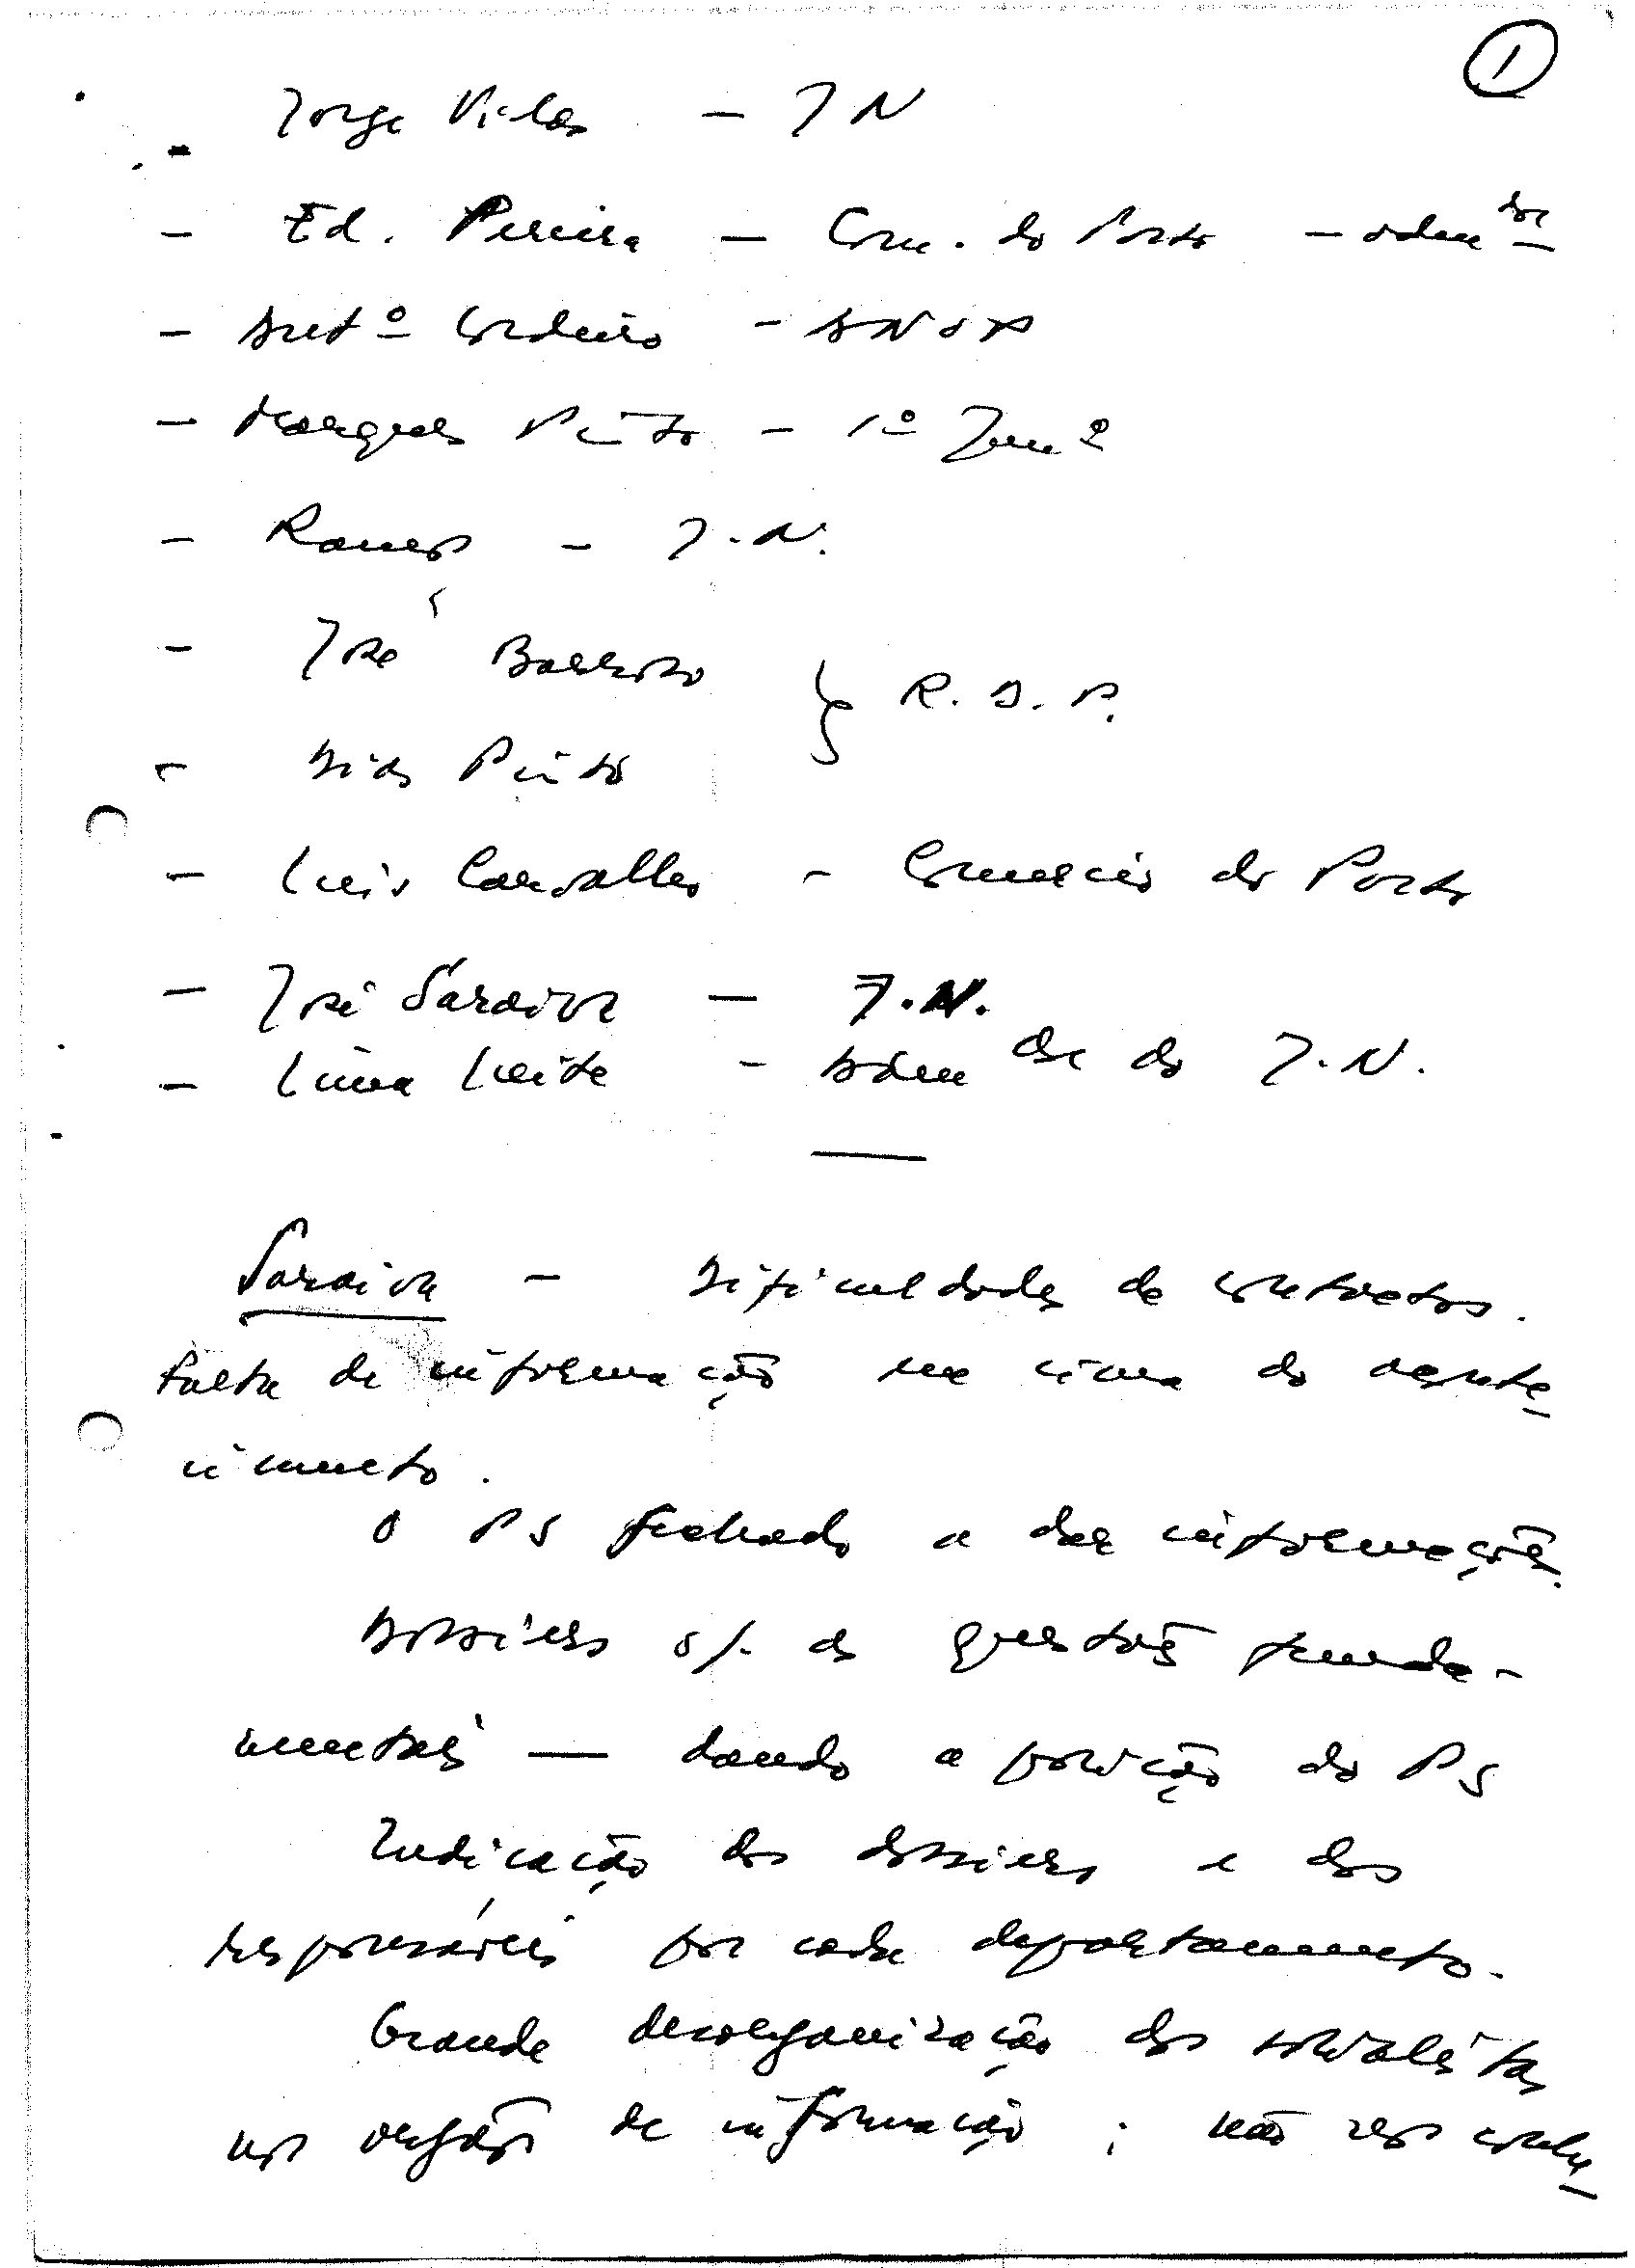 1
- Jorge Vilas - JN
- Ed. Pereira - Com. do Porto - adm dor
- Antº Cordeiro - ANOP
- Marques Pinto - 1º Janº
- Ramos - J.N.
- José Barroso } R.D.P.
- Dias Pinto
- Luis Carvalho - Comercio do Porto
- José Saraiva - J.N.
- Lima Leite - Adm dor do J.N.
Saraiva - Dificuldades de contactos.
Falta de informação em cima do aconte
cimento.
O PS fechado a dar informações.
Dossiers s/. as questões funda-
mentais — dando a posição do PS
Indicação dos dossiers e dos
responsáveis por cada departamento.
Grande desorganização dos socialistas
nos orgãos de informação ; não se conhe